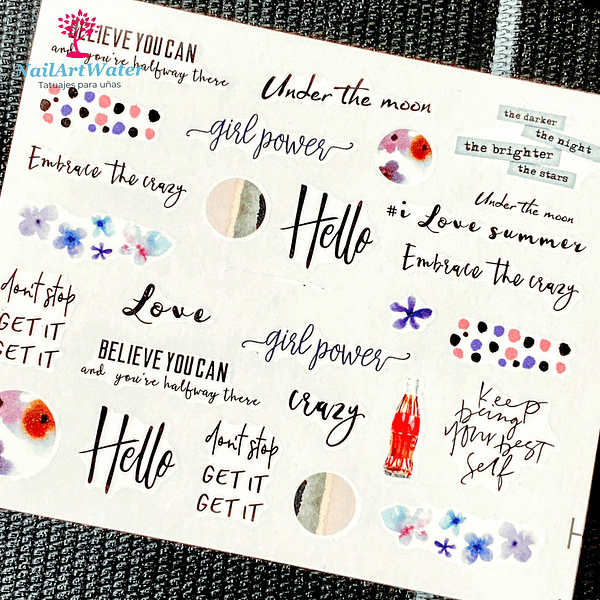 BELIEVE YOU CAN
and you're halfway there
NailArtWater
Tatuajes para uñas
Under the moon
girl power
the darker
the night
the brighter
the stars
Embrace the crazy
Hello
Under the moon
#i Love summer
Embrace the crazy
don't stop
GET IT
GET IT
Love
girl power
BELIEVE YOU CAN
and you're halfway there
crazy
Keep
being
your best
self
Hello
don't stop
GET IT
GET IT
H